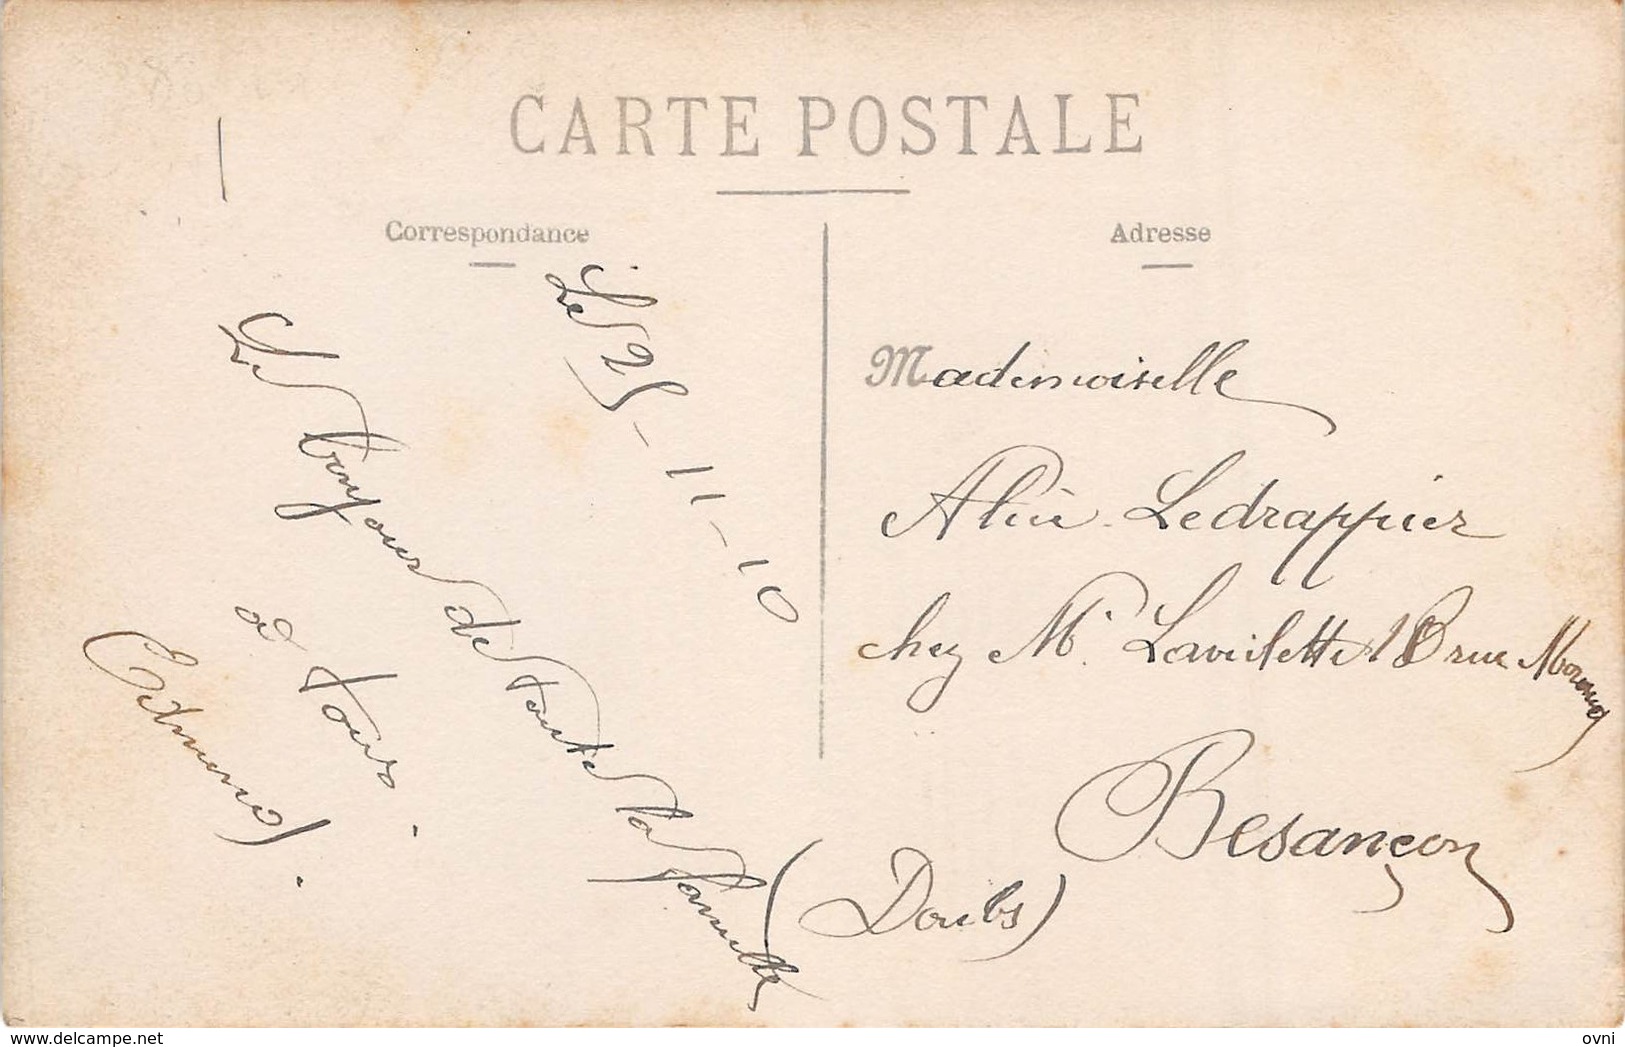 CARTE POSTALE
Correspondance
Le 25-11-10
Le bonjour de toute la famille
à tous.
Edmond.
Adresse
Mademoiselle
Aline Ledrappier
chez Mr. Lavilette 18 rue
Besançon
(Doubs)
www.delcampe.net
ovni